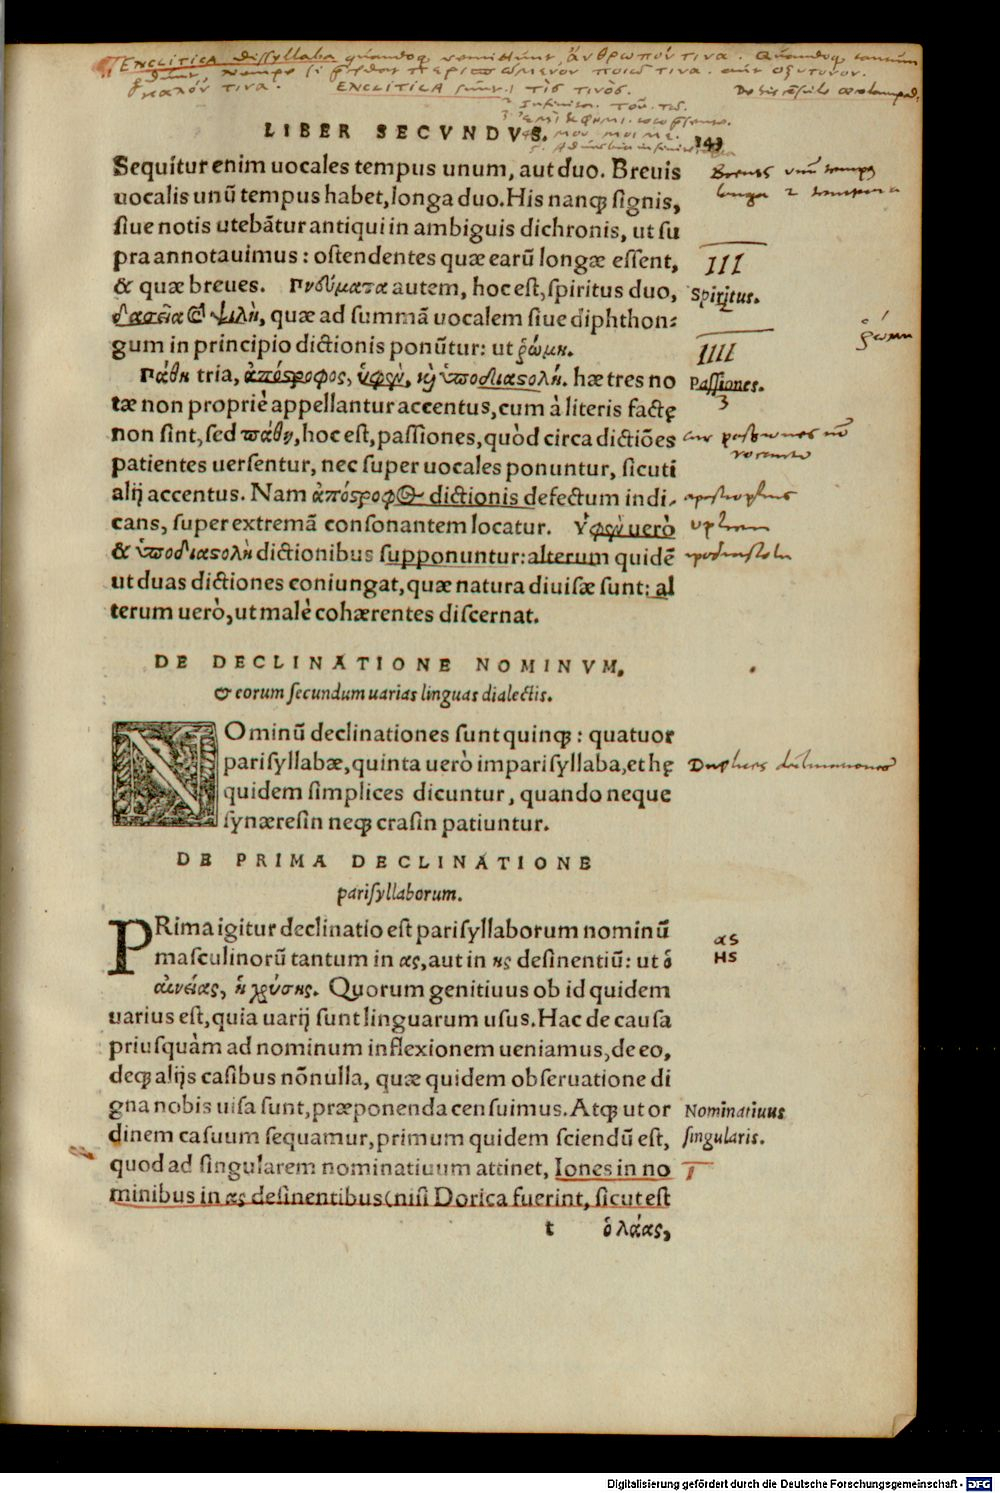 ENCLITICA dissyllaba quandoq remittunt, ἄνθρωπόν τινα. Quandoq tantum
περισπώμενον ποιῶ τινα. aut οξυτονον.
καλόν τινα. ENCLITICA sunt τὶς τινὸς.
LIBER SECVNDVS. 143
Sequitur enim uocales tempus unum, aut duo. Breuis
uocalis unũ tempus habet, longa duo. His nanq; signis,
siue notis utebãtur antiqui in ambiguis dichronis, ut su
pra annotauimus: ostendentes quæ earũ longæ essent,
& quæ breues. Πνδύματα autem, hoc est, spiritus duo,
δασεῖα & ψιλὴ, quæ ad summã uocalem siue diphthon-
gum in principio dictionis ponũtur: ut ῥώμη.
Πάθη tria, ἀπόςροφος, ὑφὲν, καὶ ὑποδιαςολή. hæ tres no
tæ non propriè appellantur accentus, cum à literis factę
non sint, sed πάθη, hoc est, passiones, quòd circa dictiões
patientes uersentur, nec super uocales ponuntur, sicuti
alij accentus. Nam ἀπόςροφος dictionis defectum indi-
cans, super extremã consonantem locatur. Ὑφὲν uerò
& ὑποδιαςολὴ dictionibus supponuntur: alterum quidẽ
ut duas dictiones coniungat, quæ natura diuisæ sunt: al
terum uerò, ut malè cohærentes discernat.
Breuis unũ tempus
longa 2 tempora
III
Spiritus.
2
ῥώμη
IIII
Passiones.
3
cur passiones
apostrophus
uphen
ypodiastole
DE DECLINATIONE NOMINVM,
& eorum secundum uarias linguas dialectis.
NOminũ declinationes sunt quinq;: quatuor
parisyllabæ, quinta uerò imparisyllaba, et hę
quidem simplices dicuntur, quando neque
synæresin neq; crasin patiuntur.
Duplices declinationes
DE PRIMA DECLINATIONE
parisyllaborum.
PRima igitur declinatio est parisyllaborum nominũ
masculinorũ tantum in ας, aut in ης desinentiũ: ut ὁ
αἰνείας, ὁ χρύσης. Quorum genitiuus ob id quidem
uarius est, quia uarij sunt linguarum usus. Hac de causa
priusquàm ad nominum inflexionem ueniamus, de eo,
deq; alijs casibus nõnulla, quæ quidem obseruatione di
gna nobis uisa sunt, præponenda censuimus. Atq; ut or
dinem casuum sequamur, primum quidem sciendũ est,
quod ad singularem nominatiuum attinet, Iones in no
minibus in ας desinentibus (nisi Dorica fuerint, sicut est
ας
ΗΣ
Nominatiuus
singularis.
t ὁ λάας,
Digitalisierung gefördert durch die Deutsche Forschungsgemeinschaft - DFG